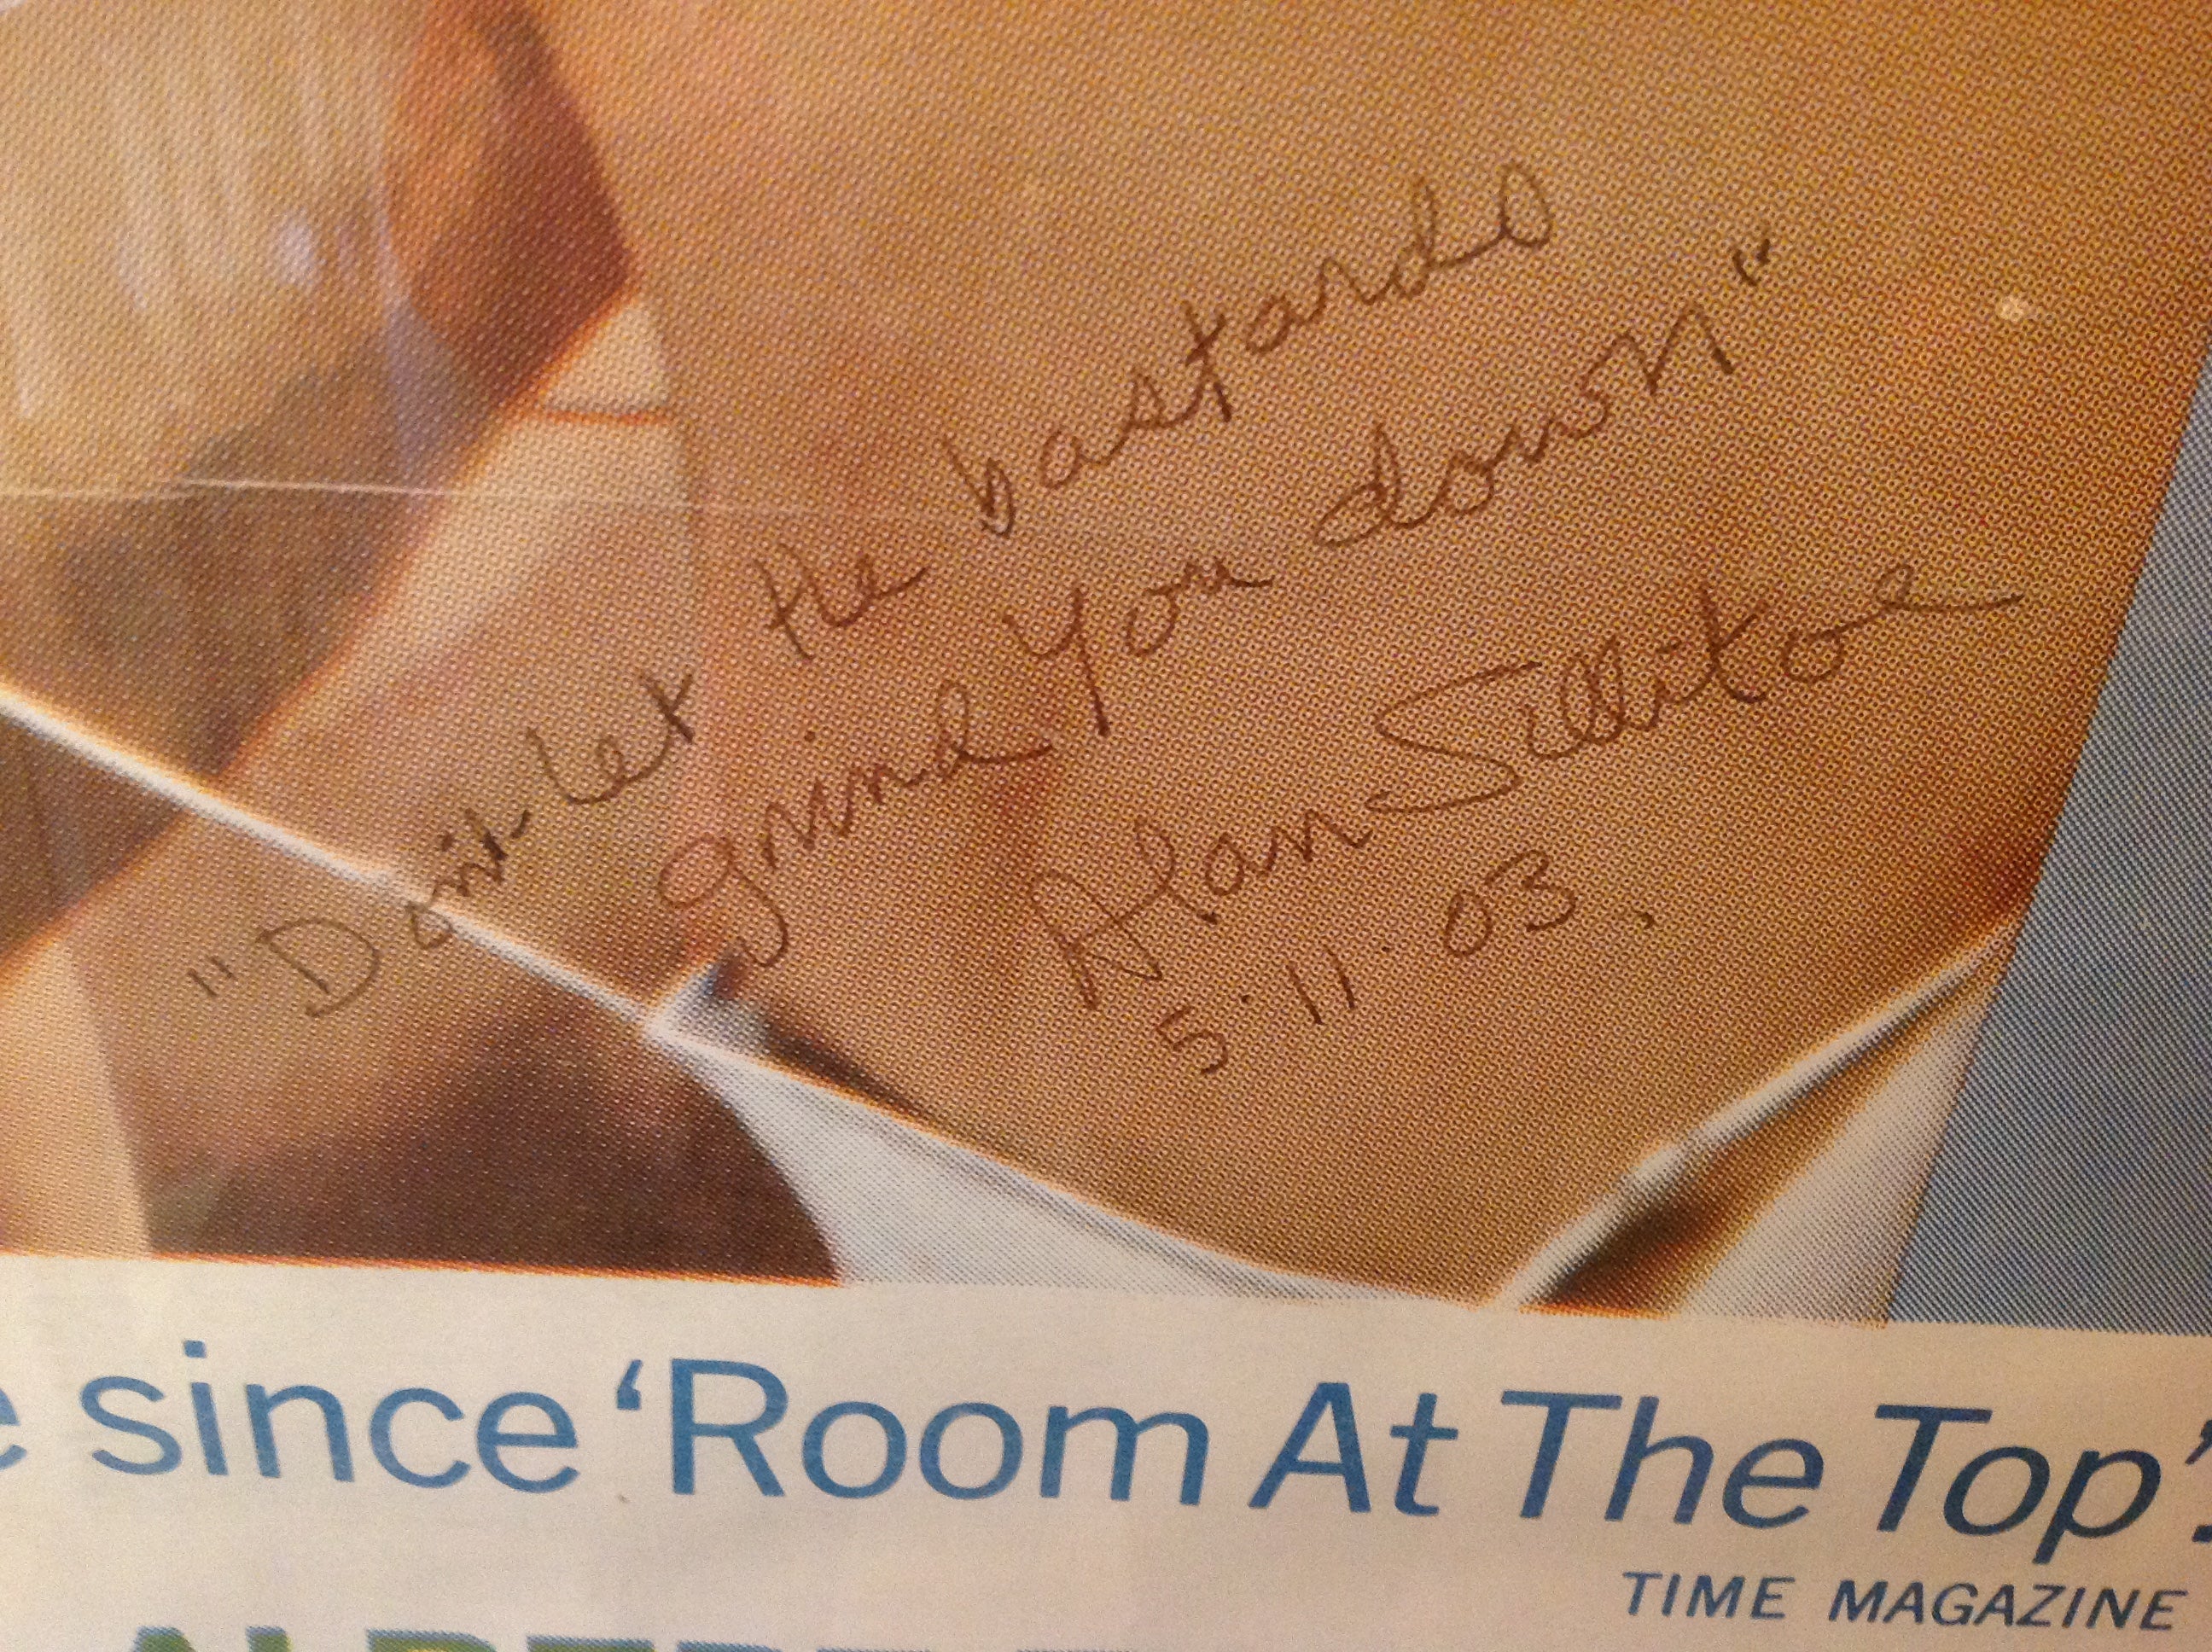 "Don't let the bastards
grind you down"
Alan Sillitoe
5.11.03.
e since 'Room At The Top'.
TIME MAGAZINE